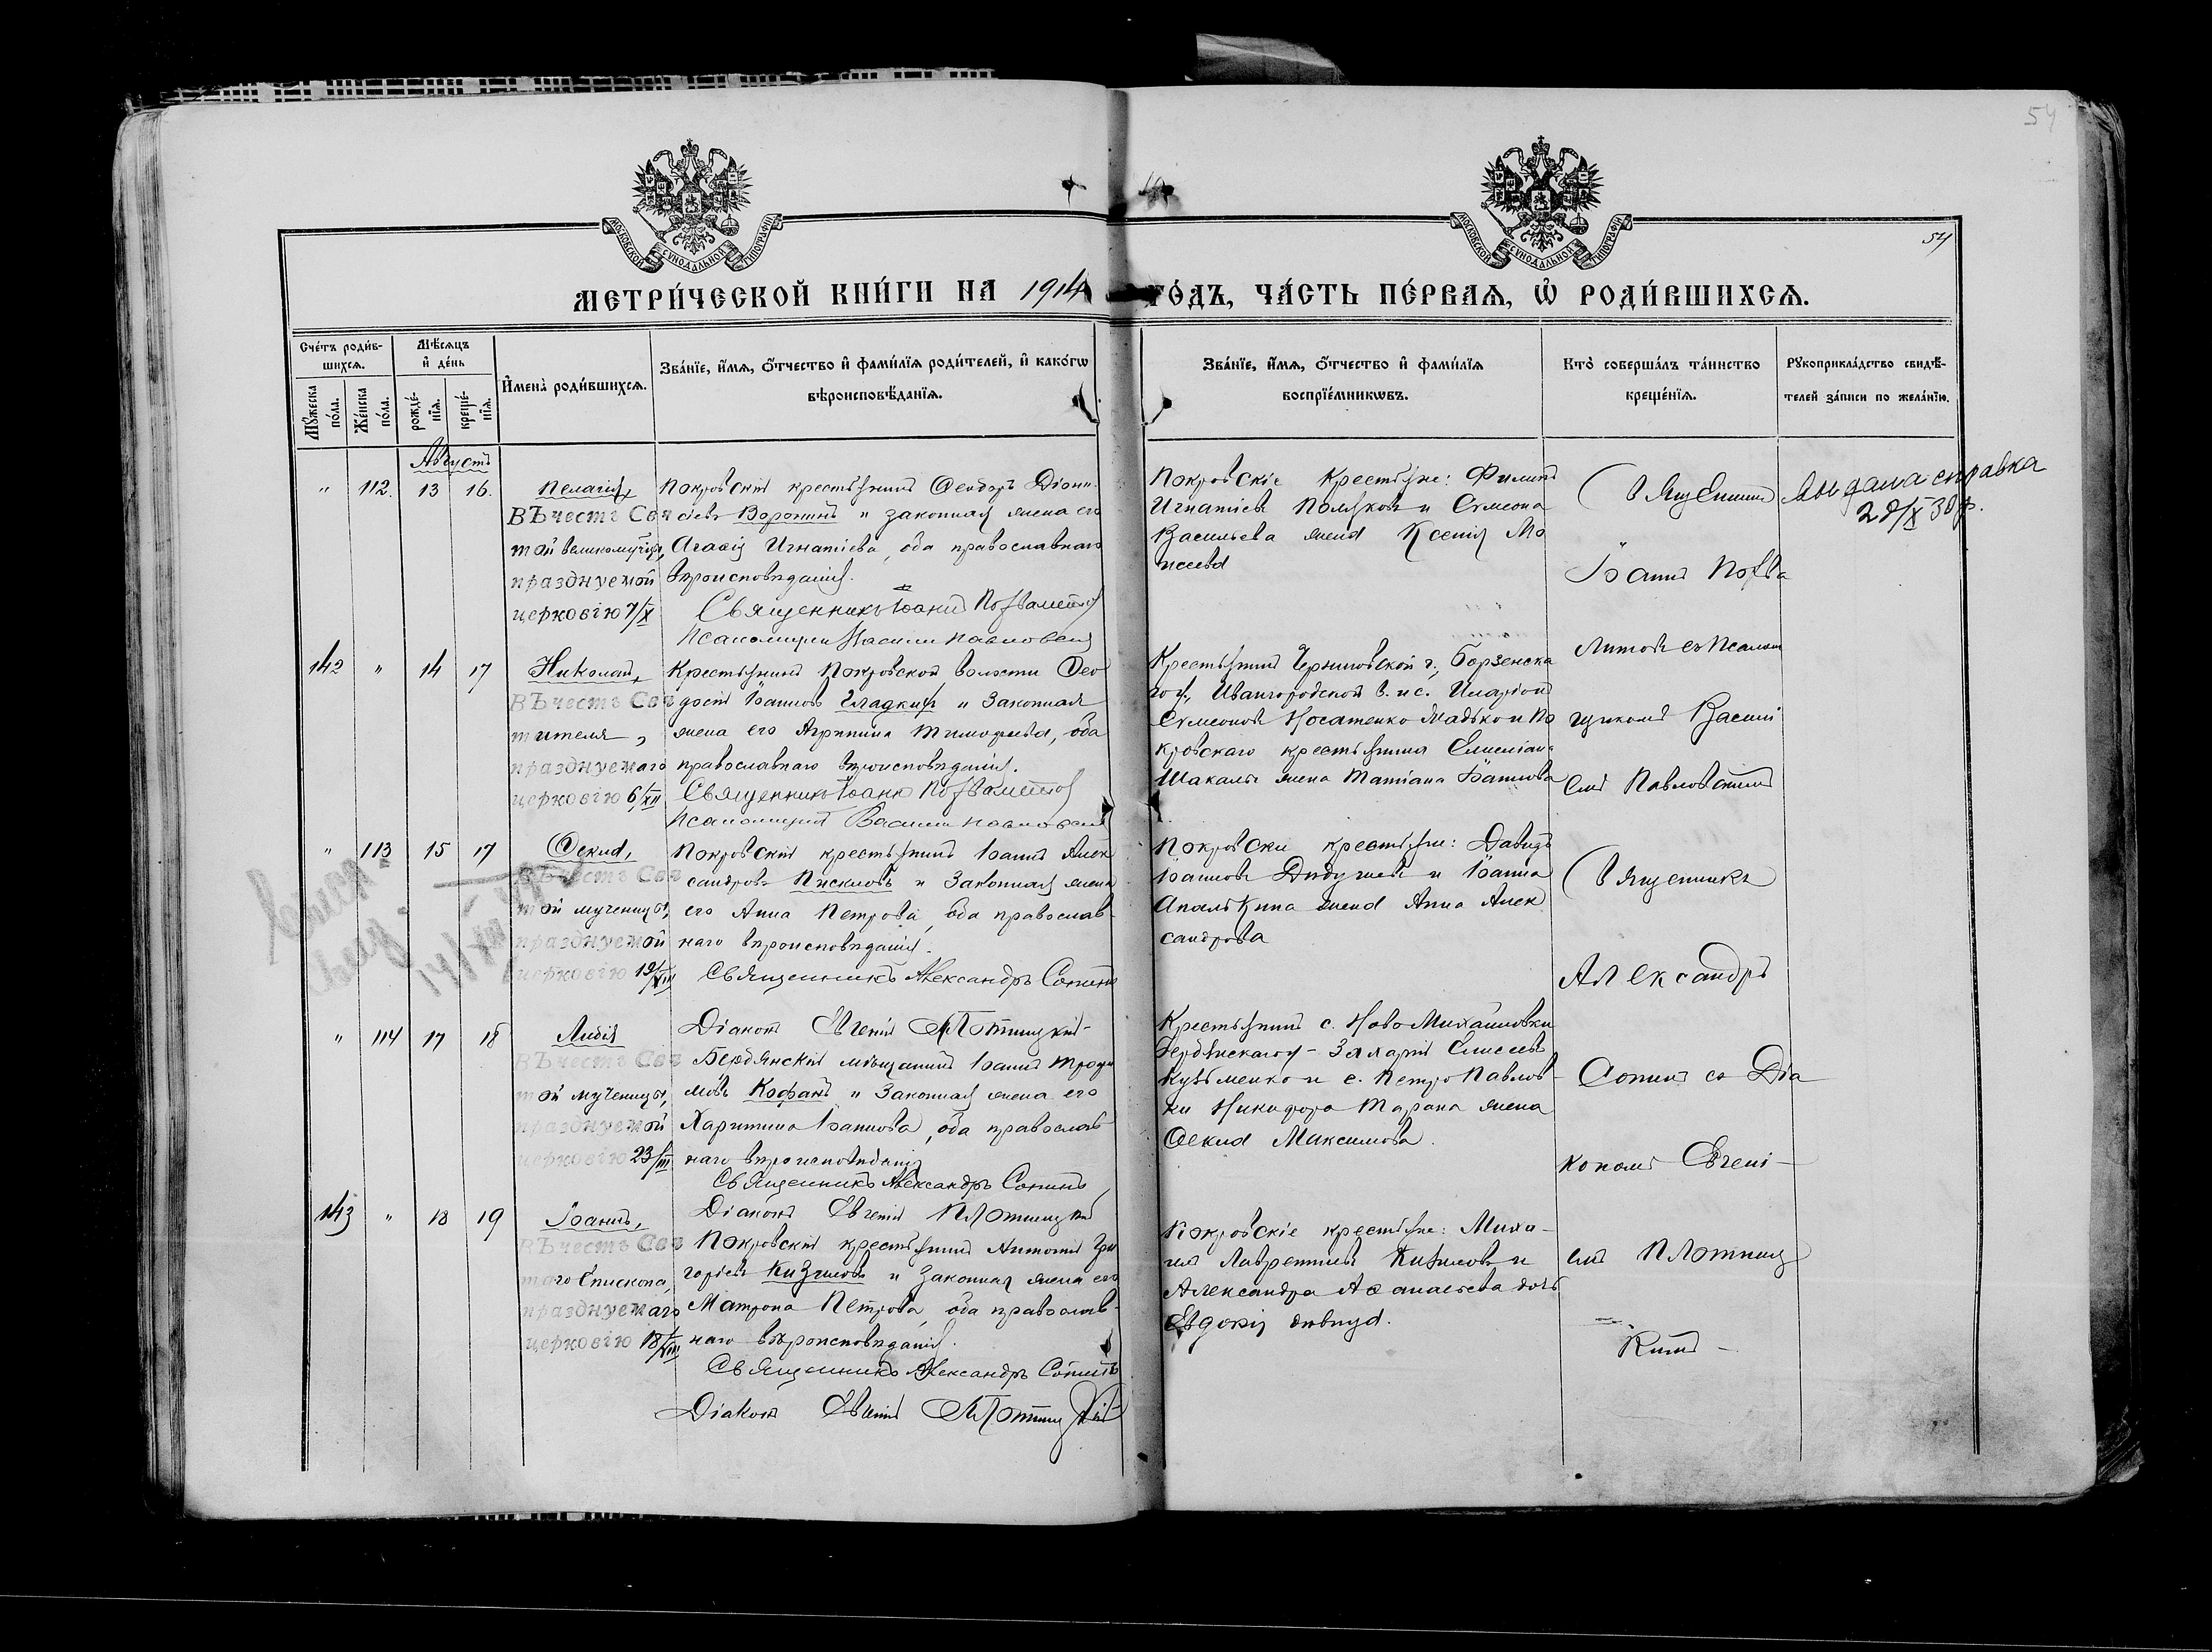 54
54
МОСКОВСКОЙ СѴНОДАЛЬНОЙ ТИПОГРАФІИ
МОСКОВСКОЙ СѴНОДАЛЬНОЙ ТИПОГРАФІИ
МЕТРИ́ЧЕСКОЙ КНИ́ГИ НА 1914 ГО́ДЪ, ЧА́СТЬ ПЕ́РВАѦ, Ѡ҆ РОДИ́ВШИХСѦ.
Сче́тъ роди́в-
шихсѧ.
Мꙋ́жеска
по́ла.
Же́нска
по́ла.
Мѣ́сѧцъ
и҆ де́нь
рожде́-
нїѧ.
креще́-
нїѧ.
И҆мена̀ роди́вшихсѧ.
Зва́нїе, и҆́мѧ, ѻ҆́тчество и҆ фами́лїѧ роди́телей, и҆ како́гѡ
вѣроисповѣ́данїѧ.
Зва́нїе, и҆́мѧ, ѻ҆́тчество и҆ фами́лїѧ
воспрїе́мникѡвъ.
Кто̀ соверша́лъ та́инство
креще́нїѧ.
Рꙋкоприкла́дство свидѣ́-
телей за́писи по жела́нїю.
Августъ
" 112. 13 16.
Пелагія,
Въ честь Свя
той великомуч-цы,
празднуемой
церковію 7/X
Покровскій крестьянинъ Ѳеодоръ Діони-
сіевъ Воронинъ и законная жена его
Агаѳія Игнатіева, оба православнаго
вѣроисповѣданія.
Священникъ Іоаннъ
Псаломщикъ Василій Павловскій
Покровскіе крестьяне: Филиппъ
Игнатіевъ Поляковъ и Сѵмеона
Васильева жена Ксенія Мо
исеева
Священникъ
Іоаннъ
выдана справка
28/X 38 г.
142 " 14 17
Николай,
Въ честь Свя
тителя,
празднуемаго
церковію 6/XII
Крестьянинъ Покровской волости Ѳео
досій Іоанновъ Гладкій и законная
жена его Агриппина Тимоѳеева, оба
православнаго вѣроисповѣданія.
Священникъ Іоаннъ
Псаломщикъ Василій Павловскій
Крестьянинъ Черниговской г., Борзенска
го у., Ивангородской в. и с. Иларіонъ
Сѵмеоновъ Носатенко и По
кровскаго крестьянина Емеліана
Шакалы жена Татіана Іоаннова
съ Псалом
щикомъ Васи
емъ Павловскимъ
" 113 15 17
Ѳекла,
Въ честь Свя
той мученицы,
празднуемой
церковію 19/VIII
Покровскій крестьянинъ Іоаннъ Алек
сандровъ Пискловъ и законная жена
его Анна Петрова, оба православ-
наго вѣроисповѣданія.
Священникъ Александръ Сопинъ
Діаконъ Евгеній Плотницкій
Покровскіе крестьяне: Давидъ
Іоанновъ и Іоанна
Апалькина жена Анна Алек
сандрова
Священникъ
Александръ
" 114 17 18
Лидія
Въ честь Свя
той мученицы,
празднуемой
церковію 23/III
Бердянскій мѣщанинъ Іоаннъ Трофи
мовъ Кофанъ и законная жена его
Харитина Іоаннова, оба православ
наго вѣроисповѣданія
Священникъ Александръ Сопинъ
Діаконъ Евгеній Плотницкій
Крестьянинъ с. Ново Михайловки
Бердянскаго у. Елисеевъ
Кузьменко и с. Петро Павлов-
ки Никифора Тарана жена
Ѳекла Максимова.
Сопинъ съ Діа
кономъ Евгені-
143 " 18 19
Іоаннъ,
Въ честь Свя
таго Епископа,
празднуемаго
церковію 18/VIII
Покровскій крестьянинъ Антоній Гри
горіевъ Кизиловъ и законная жена его
Матрона Петрова, оба православ-
наго вѣроисповѣданія.
Священникъ Александръ Сопинъ
Діаконъ Евгеній Плотницкій
Покровскіе крестьяне: Миха-
илъ Лаврентіевъ Кизиловъ и
Александра Аѳанасьева дочь
Евдокія дѣвица.
емъ Плотниц
кимъ